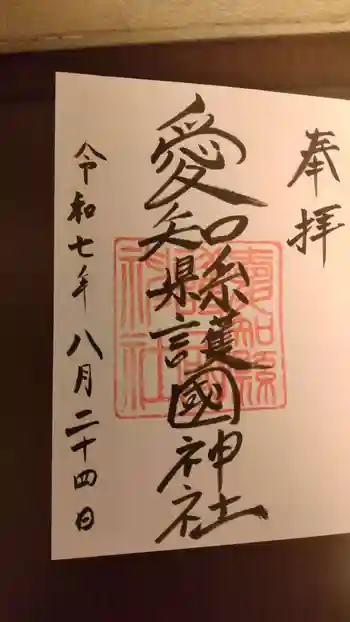 奉拝
愛知縣護國神社
令和七年八月二十四日
愛知縣護國神社